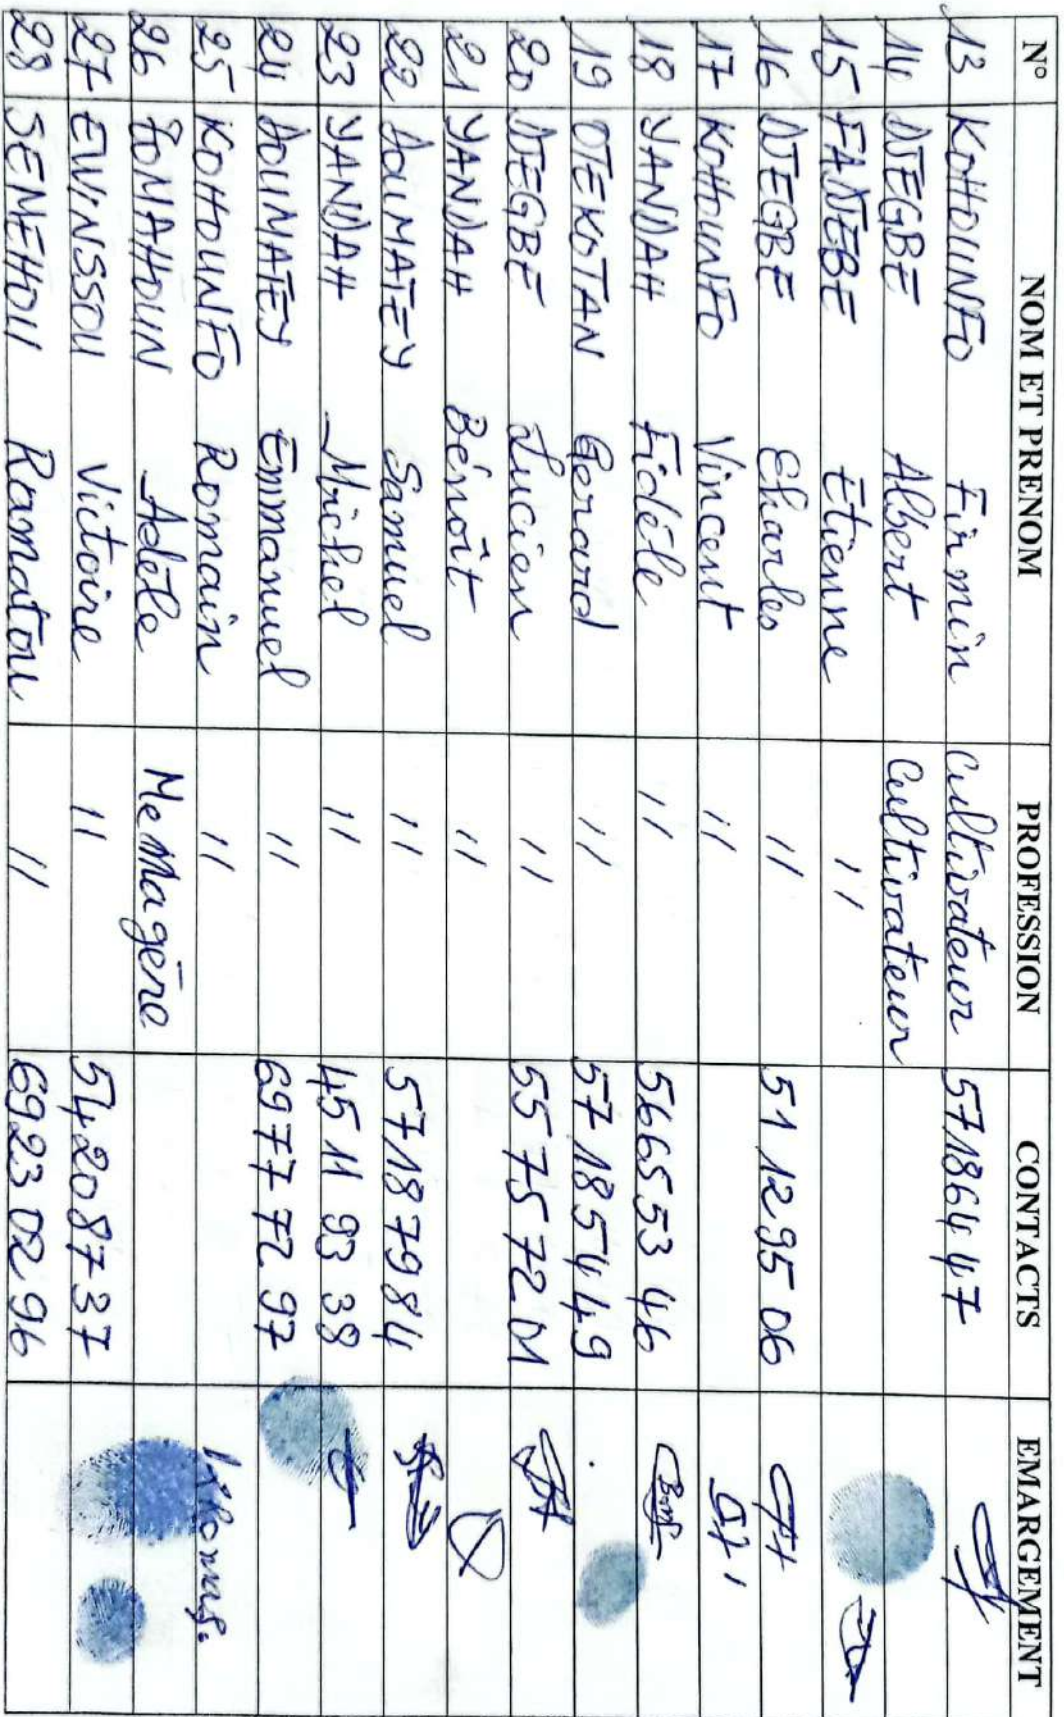 N° NOM ET PRENOM PROFESSION CONTACTS EMARGEMENT
13 KOHOUNFO Firmin Cultivateur 57186447
14 DJEGBE Albert Cultivateur
15 FADEBE Etienne 11
16 DJEGBE Charles 11 51 12 95 06
17 KOHOUNFO Vincent 11
18 YANDAH Fidéle 11 566553 46
19 OTEKOTAN Gerard 11 57 185449
20 DJEGBE Lucien 11 55 75 72 01
21 YANDAH Bénoît 11
22 AOUMATEY Samuel 11 57187984
23 YANDAH Michel 11 45 11 93 38
24 AOUMATEY Emmanuel 11 69 77 72 97
25 KOHOUNFO Romain 11
26 TOMAHOUN Adèle Memagère
27 EVINSSOU Vitoire 11 54208737
28 SEMEHOU Ramatou 11 6923 02 96